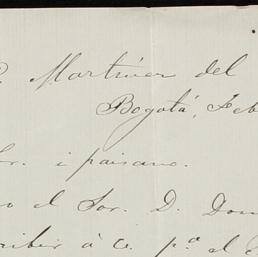 Martinez del
Bogotá, Feb
Sr. i paisano.
el Sor. D. Dom
cribir á U. pª el